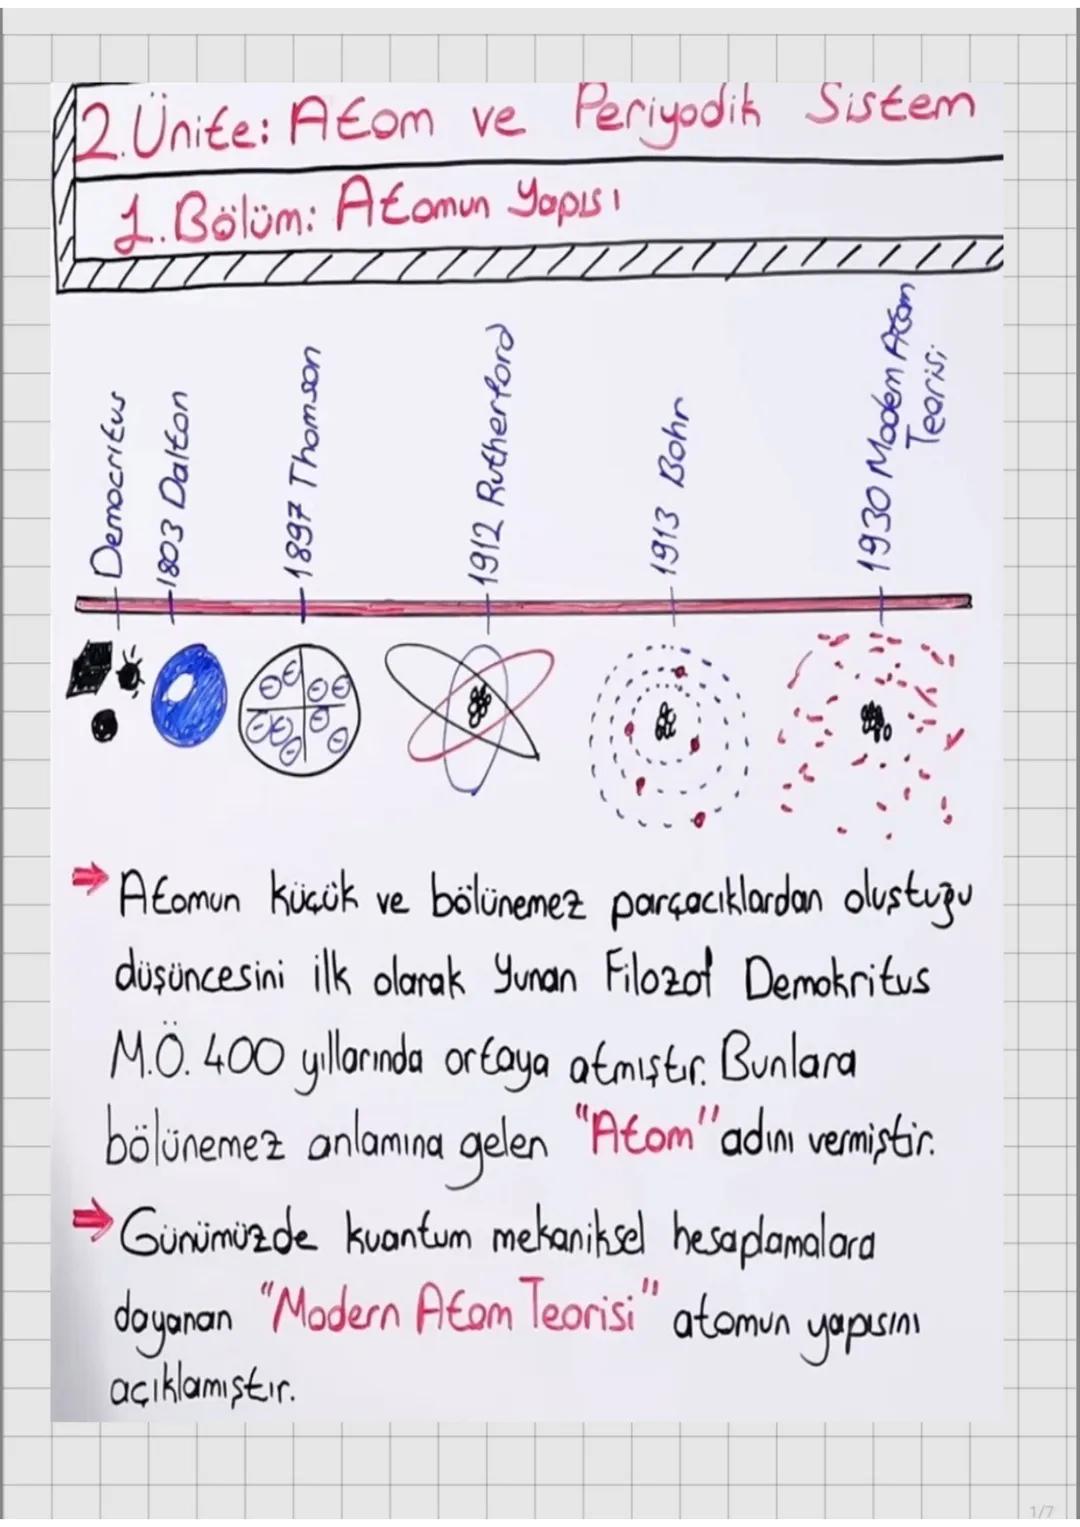 2.Ünite: Atom ve Periyodik Sistem
1.Bölüm: Atomun Yapısı
Democritus
1803 Dalton
1897 Thomson
1912 Rutherford
1913 Bohr
1930 Modern Atom
Teorisi
Atomun küçük ve bölünemez parçacıklardan oluştuğu
düşüncesini ilk olarak Yunan Filozof Demokritus
M.Ö. 400 yıllarında ortaya atmıştır. Bunlara
bölünemez anlamına gelen "Atom" adını vermiştir.
Günümüzde kuantum mekaniksel hesaplamalara
dayanan "Modern Atom Teorisi" atomun yapısını
açıklamıştır.
1/7